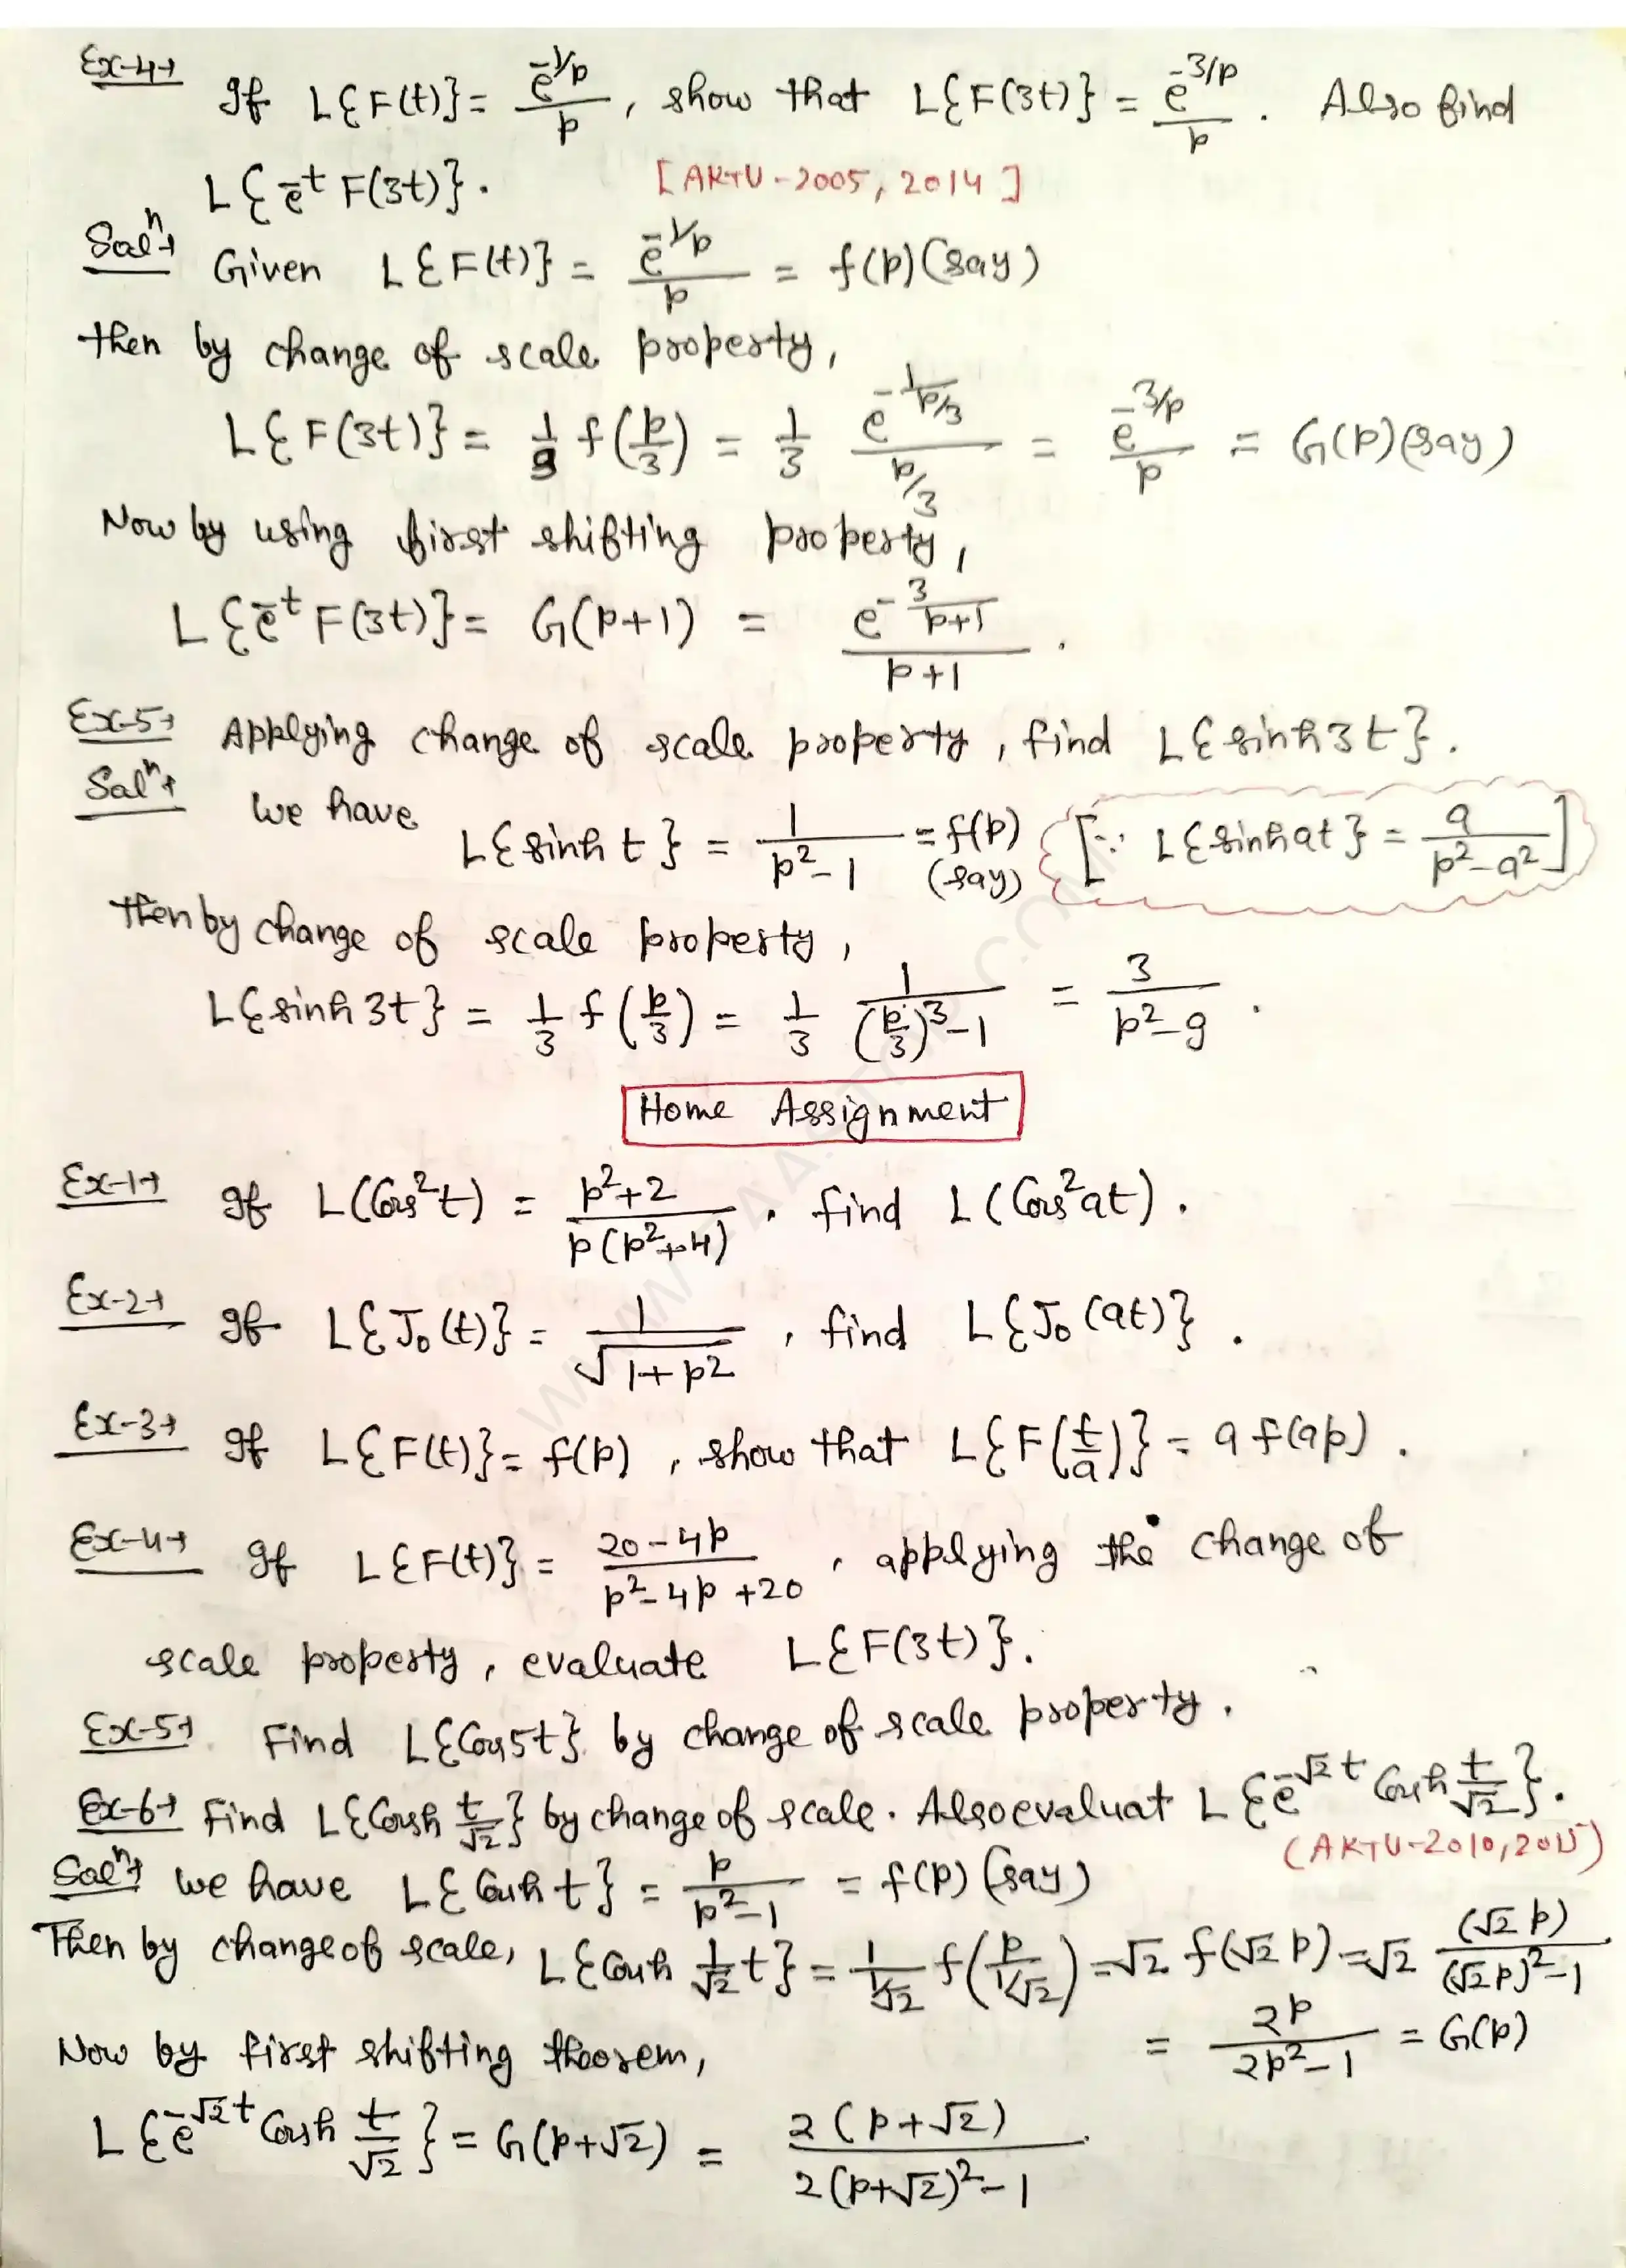 Ex-4→ If L{F(t)} = e^{-1/p}/p, show that L{F(3t)} = e^{-3/p}/p. Also find
L{e^{-t} F(3t)}. [AKTU-2005, 2014]
Solⁿ→ Given L{F(t)} = e^{-1/p}/p = f(p) (say)
then by change of scale property,
L{F(3t)} = 1/3 f(p/3) = 1/3 e^{-1/(p/3)}/(p/3) = e^{-3/p}/p = G(p) (say)
Now by using first shifting property,
L{e^{-t} F(3t)} = G(p+1) = e^{-3/(p+1)}/(p+1).
Ex-5→ Applying change of scale property, find L{sinh3t}.
Solⁿ→ we have L{sinh t} = 1/(p²-1) = f(p) (say) [∵ L{sinhat} = a/(p²-a²)]
then by change of scale property,
L{sinh 3t} = 1/3 f(p/3) = 1/3 1/((p/3)³-1) = 3/(p²-9).
Home Assignment
Ex-1→ If L(Cos²t) = (p²+2)/(p(p²+4)). find L(Cos²at).
Ex-2→ If L{J₀(t)} = 1/√(1+p²), find L{J₀(at)}.
Ex-3→ If L{F(t)} = f(p), show that L{F(t/a)} = a f(ap).
Ex-4→ If L{F(t)} = (20-4p)/(p²-4p+20), applying the change of
scale property, evaluate L{F(3t)}.
Ex-5→. Find L{Cos5t} by change of scale property.
Ex-6→ Find L{Cosh t/√2} by change of scale. Also evaluat L{e^{-√2t} Cosh t/√2}.
(AKTU-2010, 2015)
Solⁿ→ we have L{Cosh t} = p/(p²-1) = f(p) (say)
Then by change of scale, L{Cosh 1/√2 t} = 1/(1/√2) f(p/(1/√2)) = √2 f(√2 p) = √2 (√2 p)/((√2 p)²-1)
= 2p/(2p²-1) = G(p)
Now by first shifting theorem,
L{e^{-√2t} Cosh t/√2} = G(p+√2) = 2(p+√2)/(2(p+√2)²-1)